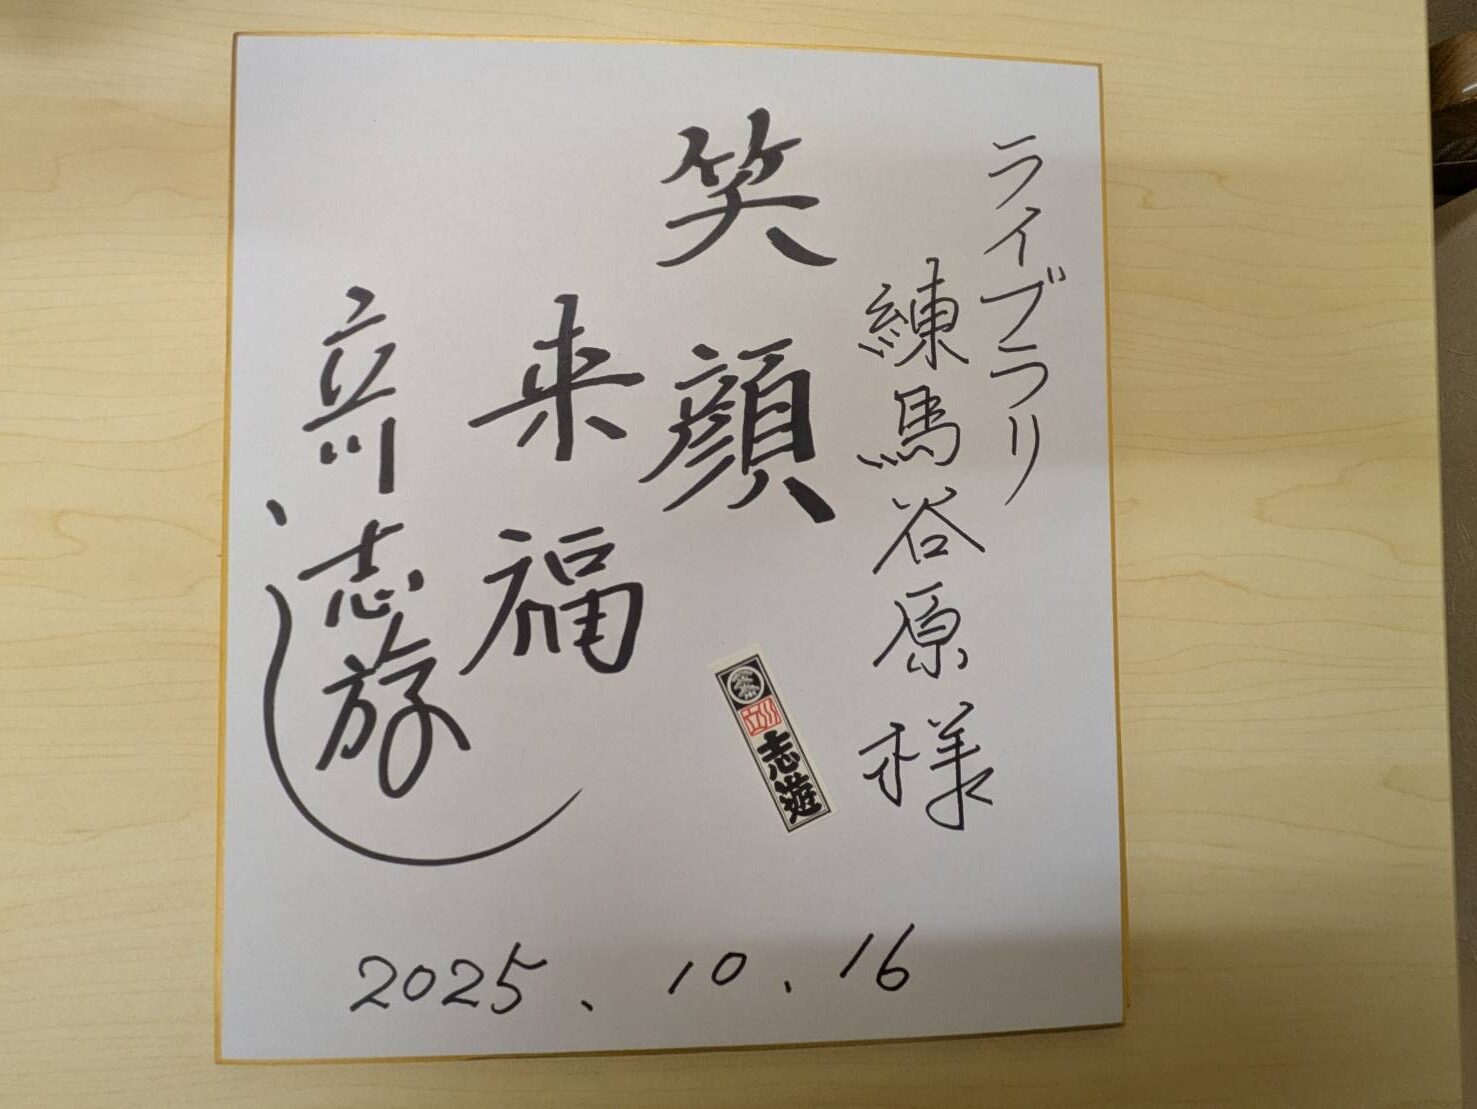 ライブラリ
練馬谷原様
笑顔
来福
立川志遊
立川
志遊
2025.10.16